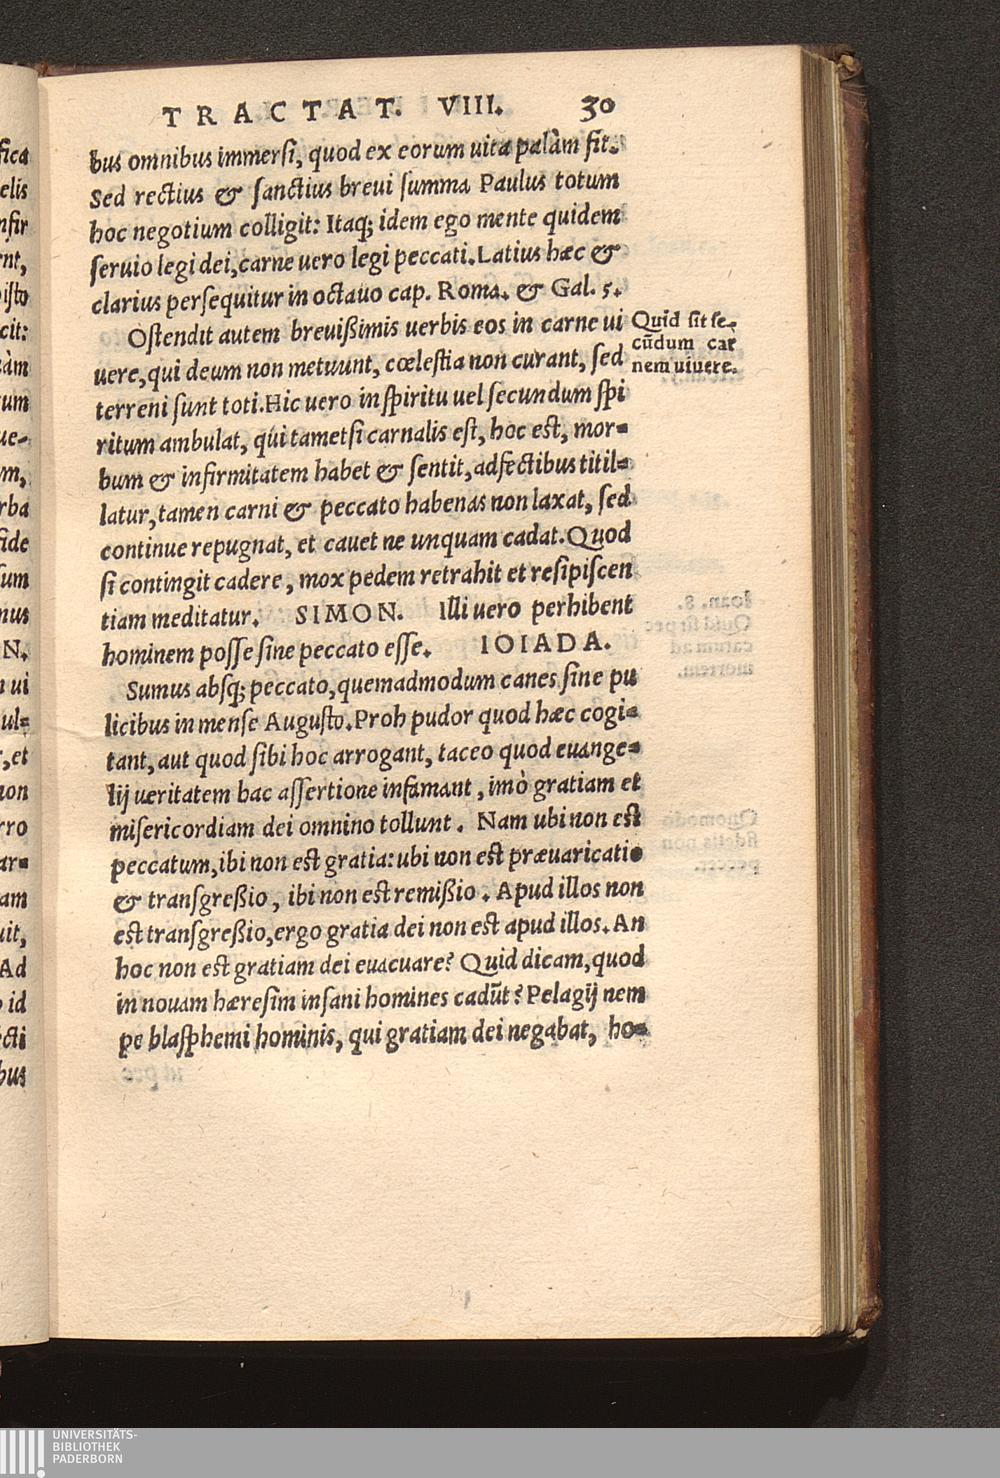 TRACTAT. VIII. 30
bus omnibus immersi, quod ex eorum uita palàm fit.
Sed rectius & sanctius breui summa Paulus totum
hoc negotium colligit: Itaq; idem ego mente quidem
seruio legi dei, carne uero legi peccati. Latius hæc &
clarius persequitur in octauo cap. Roma. & Gal. 5.
Ostendit autem breuißimis uerbis eos in carne ui
uere, qui deum non metuunt, cœlestia non curant, sed
terreni sunt toti. Hic uero in spiritu uel secundum spi
ritum ambulat, qui tametsi carnalis est, hoc est, mor=
bum & infirmitatem habet & sentit, adfectibus titil=
latur, tamen carni & peccato habenas non laxat, sed
continue repugnat, et cauet ne unquam cadat. Quod
si contingit cadere, mox pedem retrahit et resipiscen
tiam meditatur. SIMON. Illi uero perhibent
hominem posse sine peccato esse. IOIADA.
Sumus absq; peccato, quemadmodum canes sine pu
licibus in mense Augusto. Proh pudor quod hæc cogi=
tant, aut quod sibi hoc arrogant, taceo quod euange=
lij ueritatem hac assertione infamant, imò gratiam et
misericordiam dei omnino tollunt. Nam ubi non est
peccatum, ibi non est gratia: ubi non est præuaricatio
& transgreßio, ibi non est remißio. Apud illos non
est transgreßio, ergo gratia dei non est apud illos. An
hoc non est gratiam dei euacuare? Quid dicam, quod
in nouam hæresim insani homines cadūt? Pelagij nem
pe blasphemi hominis, qui gratiam dei negabat, ho=
Quid sit se-
cūdum car
nem uiuere.
fica
elis
nfir
nt,
isto
cit:
àm
um
ue-
m,
rba
fide
sum
nus
N.
n ui
ul=
, et
non
rro
ar=
am
uit,
Ad
id
cti
bus
UNIVERSITÄTS-
BIBLIOTHEK
PADERBORN